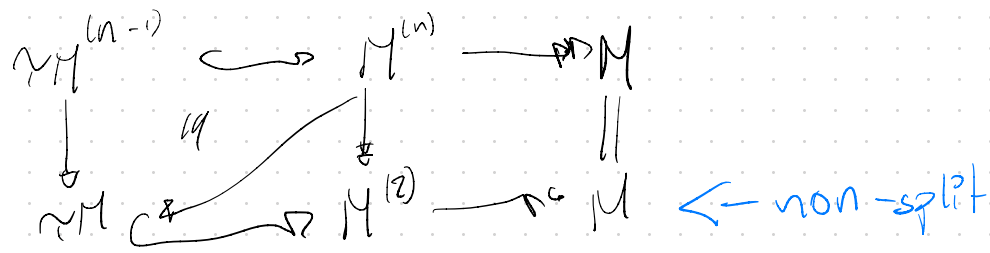 τM^(n-1) ↪ M^(n) ↠ M
τM ↪ M^(2) ↠ M ← non-split